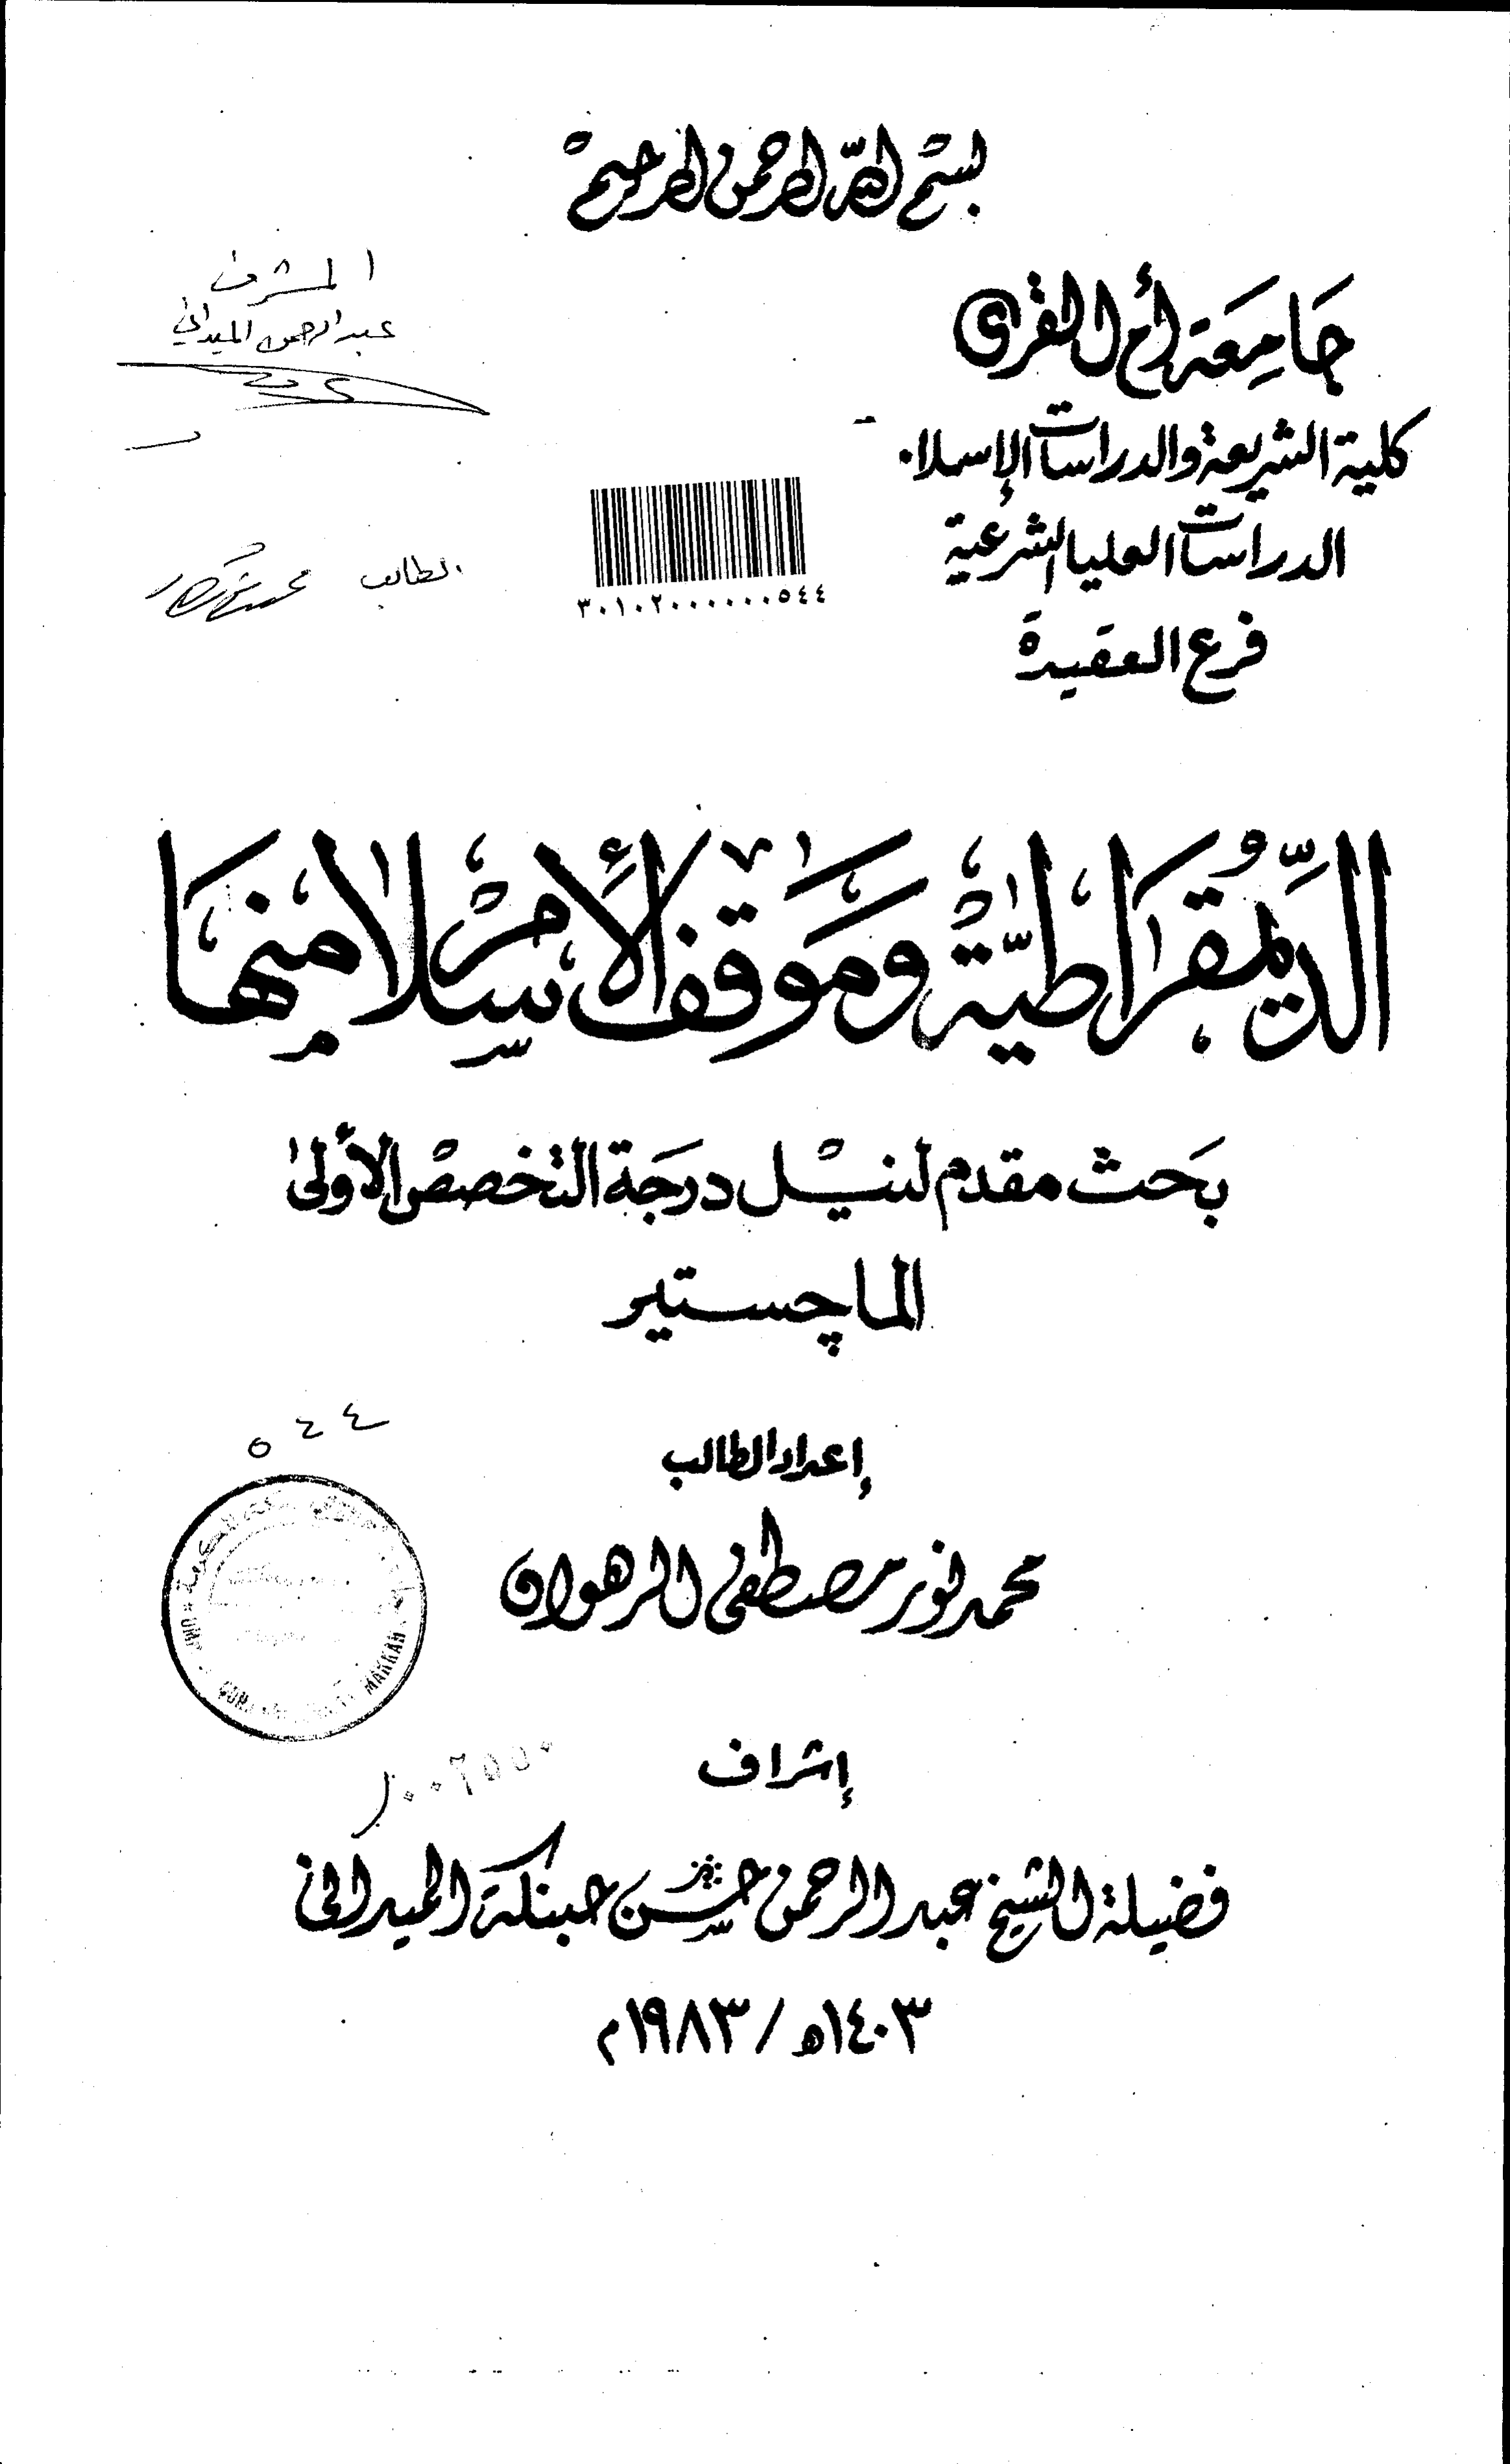 بسم الله الرحمن الرحيم
المشرف
عبد الرحمن الميداني
جَامِعَة أم القرى
كلية الشريعة والدراسات الإسلا
الدراسات العليا الشرعية
فرع العقيدة
٣٠١٠٢٠٠٠٠٠٠٥٤٤
الطالب
الدِّيمُقرَاطيَّة وَمَوقف الإسلام منهَا
بَحث مقدم لنيْل درجَة التخصص الأولى
الماچستير
٥٤٤
إعداد الطالب
محمد نور مصطفى الرهوان
MAKKAH
إشراف
فضيلة الشيخ عبد الرحمن حسن حبنكة الميداني
١٤٠٣ه / ١٩٨٣م